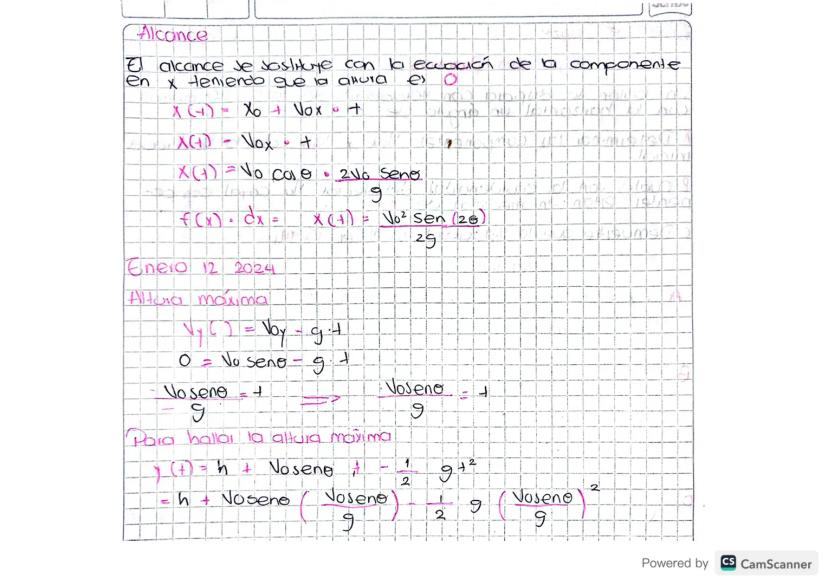 Alcance
El alcance se sostituye con la ecuación de la componente
en x teniendo que la altura es 0
x(t) = x₀ + Vox · t
x(t) = Vox · t
x(t) = Vo cosθ · 2Vo Senθ / g
f(x) · dx = x(t) = Vo² Sen (2θ) / 2g
Enero 12 2024
Altura máxima
Vy( ) = Voy - g·t
0 = Vo senθ - g·t
- Vo senθ / - g = t ⟹ Vo senθ / g = t
Para hallar la altura máxima
y(t) = h + Vo senθ t - 1/2 g t²
= h + Vo senθ (Vo senθ / g) - 1/2 g (Vo senθ / g)²
Powered by CS CamScanner